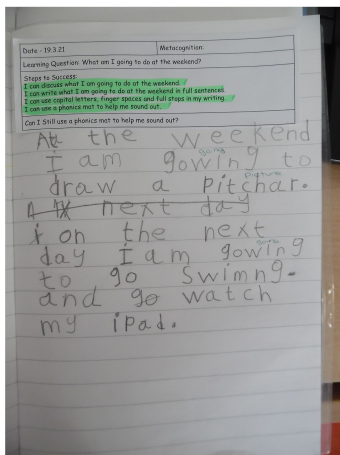 Date - 19.3.21 Metacognition:
Learning Question: What am I going to do at the weekend?
Steps to Success:
I can discuss what I am going to do at the weekend.
I can write what I am going to do at the weekend in full sentences.
I can use capital letters, finger spaces and full stops in my writing.
I can use a phonics mat to help me sound out.
Can I Still use a phonics mat to help me sound out?
At the weekend
going
I am gowing to
picture
draw a pitchar.
next day
i on the next
going
day I am gowing
to go Swimng.
and go watch
my ipad.